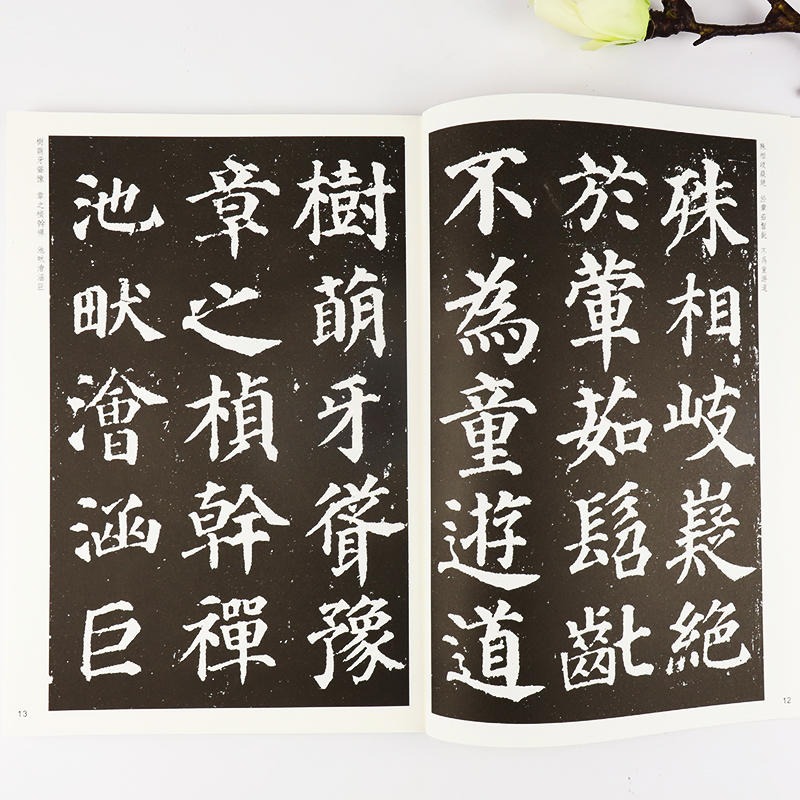 殊相岐嶷絕　於葷茹髫齔　不為童遊道
殊相岐嶷絕
於葷茹髫齔
不為童遊道
12
樹萌牙聳豫
章之楨幹禪
池畎澮涵巨
樹萌牙聳豫　章之楨幹禪　池畎澮涵巨
13